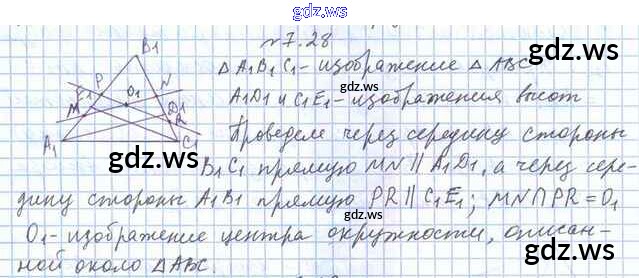 gdz.top
№7.28
B1
P
N
F1
O1
M
D1
R
A1
C1
Δ A1B1C1 - изображение Δ ABC
A1D1 и C1E1 - изображения высот
Проведем через середину стороны
B1C1 прямую MN ∥ A1D1, а через сере-
дину стороны A1B1 прямую PR ∥ C1E1; MN ∩ PR = O1
O1 - изображение центра окружности, описан-
ной около Δ ABC.
gdz.top
gdz.top
gdz.top
gdz.top
gdz.top
gdz.top